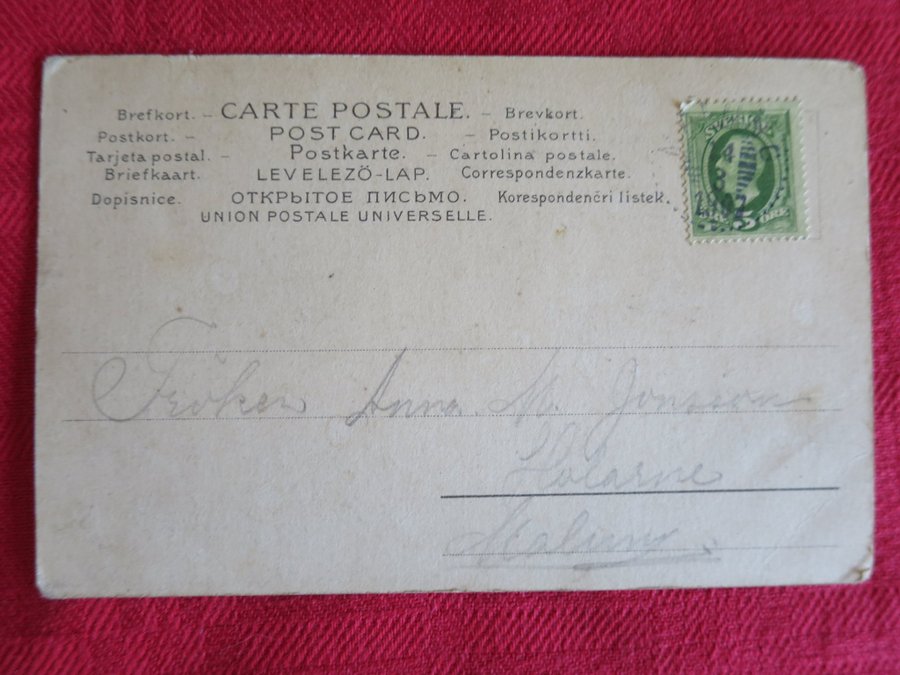 Brefkort. – CARTE POSTALE. – Brevkort.
Postkort. – POST CARD. – Postikortti.
Tarjeta postal. – Postkarte. – Cartolina postale.
Briefkaart. LEVELEZÖ-LAP. Correspondenzkarte.
Dopisnice. ОТКРЫТОЕ ПИСЬМО. Korespondenčri listek.
UNION POSTALE UNIVERSELLE.
5 ÖRE
Fröken Anna M. Jonsson